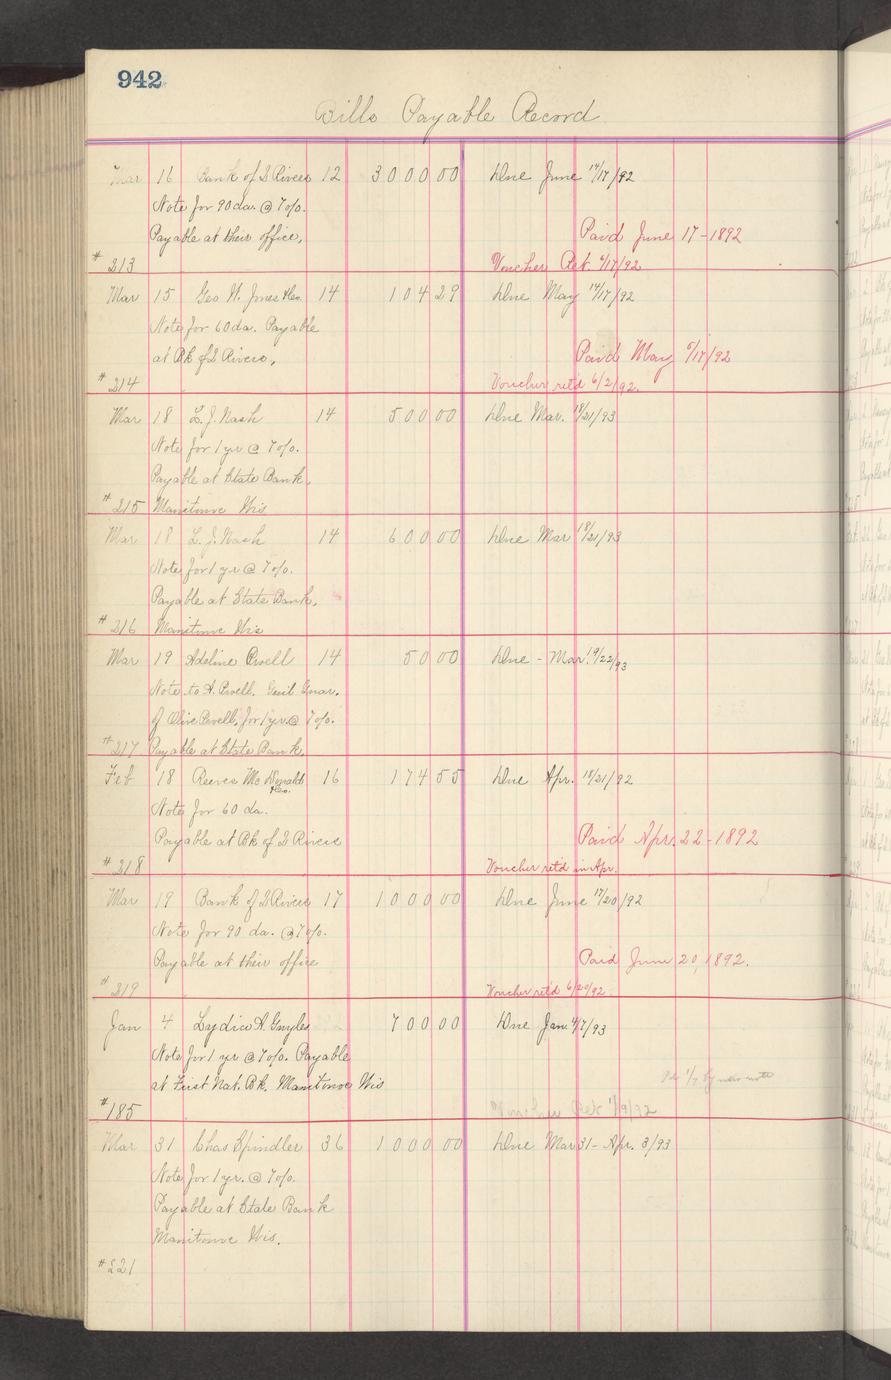 942
Bills Payable Record
Mar 16 Bank of 2 Rivers 12 3000 00 Due June 14/17/92
Note for 90 da. @ 7%.
Payable at their office, Paid June 17-1892
#213 Voucher Ret 6/17/92
Mar 15 Geo W. Jones &Co. 14 104 29 Due May 14/17/92
Note for 60 da. Payable
at Bk of 2 Rivers, Paid May 5/17/92
#214 Voucher ret'd 6/2/92.
Mar 18 L. J. Nash 14 500 00 Due Mar. 18/21/93
Note for 1 yr @ 7%.
Payable at State Bank,
#215 Manitowoc Wis
Mar 18 L. J. Nash 14 600 00 Due Mar 18/21/93
Note for 1 yr @ 7%.
Payable at State Bank,
#216 Manitowoc Wis
Mar 19 Adeline Powell 14 50 00 Due - Mar 19/22/93
Note to A. Powell, Guar.
of Olive Powell, for 1 yr. @ 7%.
#217 Payable at State Bank,
Feb 18 Reeves McDonald &Co. 16 174 55 Due Apr. 18/21/92
Note for 60 da.
Payable at Bk of 2 Rivers Paid Apr. 22-1892
#218 Voucher ret'd in Apr.
Mar 19 Bank of 2 Rivers 17 1000 00 Due June 17/20/92
Note for 90 da. @ 7%.
Payable at their office Paid June 20, 1892.
#219 Voucher ret'd 6/20/92
Jan 4 Lydia A. 700 00 Due Jan 4/7/93
Note for 1 yr @ 7%. Payable
at First Nat. Bk. Manitowoc Wis by new note
#185 Voucher Ret 1/9/92
Mar 31 Chas Spindler 36 1000 00 Due Mar 31 - Apr. 3/93
Note for 1 yr. @ 7%.
Payable at State Bank
Manitowoc Wis.
#221